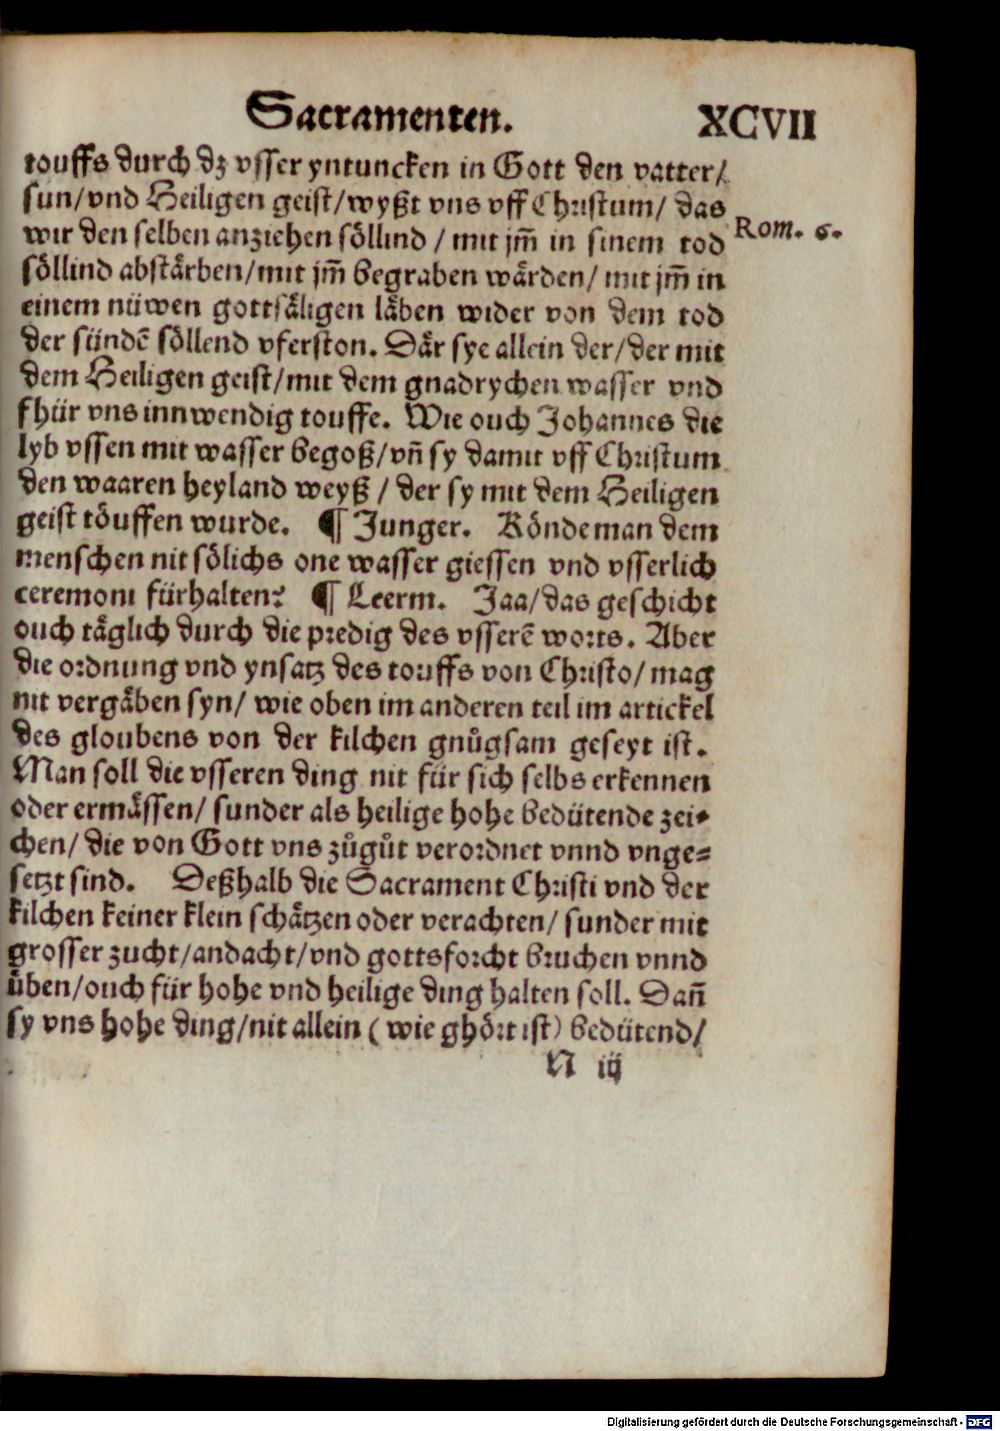 Sacramenten. XCVII
touffs durch dz vsser yntuncken in Gott den vatter/
sun/vnd Heiligen geist/wyßt vns vff Christum/ das
wir den selben anziehen söllind / mit jm̄ in sinem tod
Rom. 6.
söllind abstårben/mit jm̄ begraben wården/ mit jm̄ in
einem nüwen gottsåligen låben wider von dem tod
der sündē söllend vferston. Dår sye allein der/der mit
dem Heiligen geist/mit dem gnadrychen wasser vnd
fhür vns innwendig touffe. Wie ouch Johannes die
lyb vssen mit wasser begoß/vn̄ sy damit vff Christum
den waaren heyland weyß / der sy mit dem Heiligen
geist töuffen wurde. ¶ Junger. Könde man dem
menschen nit sölichs one wasser giessen vnd vsserlich
ceremoni fürhalten? ¶ Leerm. Jaa/das geschicht
ouch täglich durch die predig des vsserē worts. Aber
die ordnung vnd ynsatz des touffs von Christo/ mag
nit vergåben syn/ wie oben im anderen teil im artickel
des gloubens von der kilchen gnůgsam geseyt ist.
Man soll die vsseren ding nit für sich selbs erkennen
oder ermåssen/ sunder als heilige hohe bedütende zei⸗
chen/ die von Gott vns zůgůt verordnet vnnd ynge⸗
setzt sind. Deßhalb die Sacrament Christi vnd der
kilchen keiner klein schåtzen oder verachten/ sunder mit
grosser zucht/andacht/vnd gottsforcht bruchen vnnd
üben/ouch für hohe vnd heilige ding halten soll. Dan̄
sy vns hohe ding/nit allein ( wie ghört ist) bedütend/
N iij
Digitalisierung gefördert durch die Deutsche Forschungsgemeinschaft - DFG